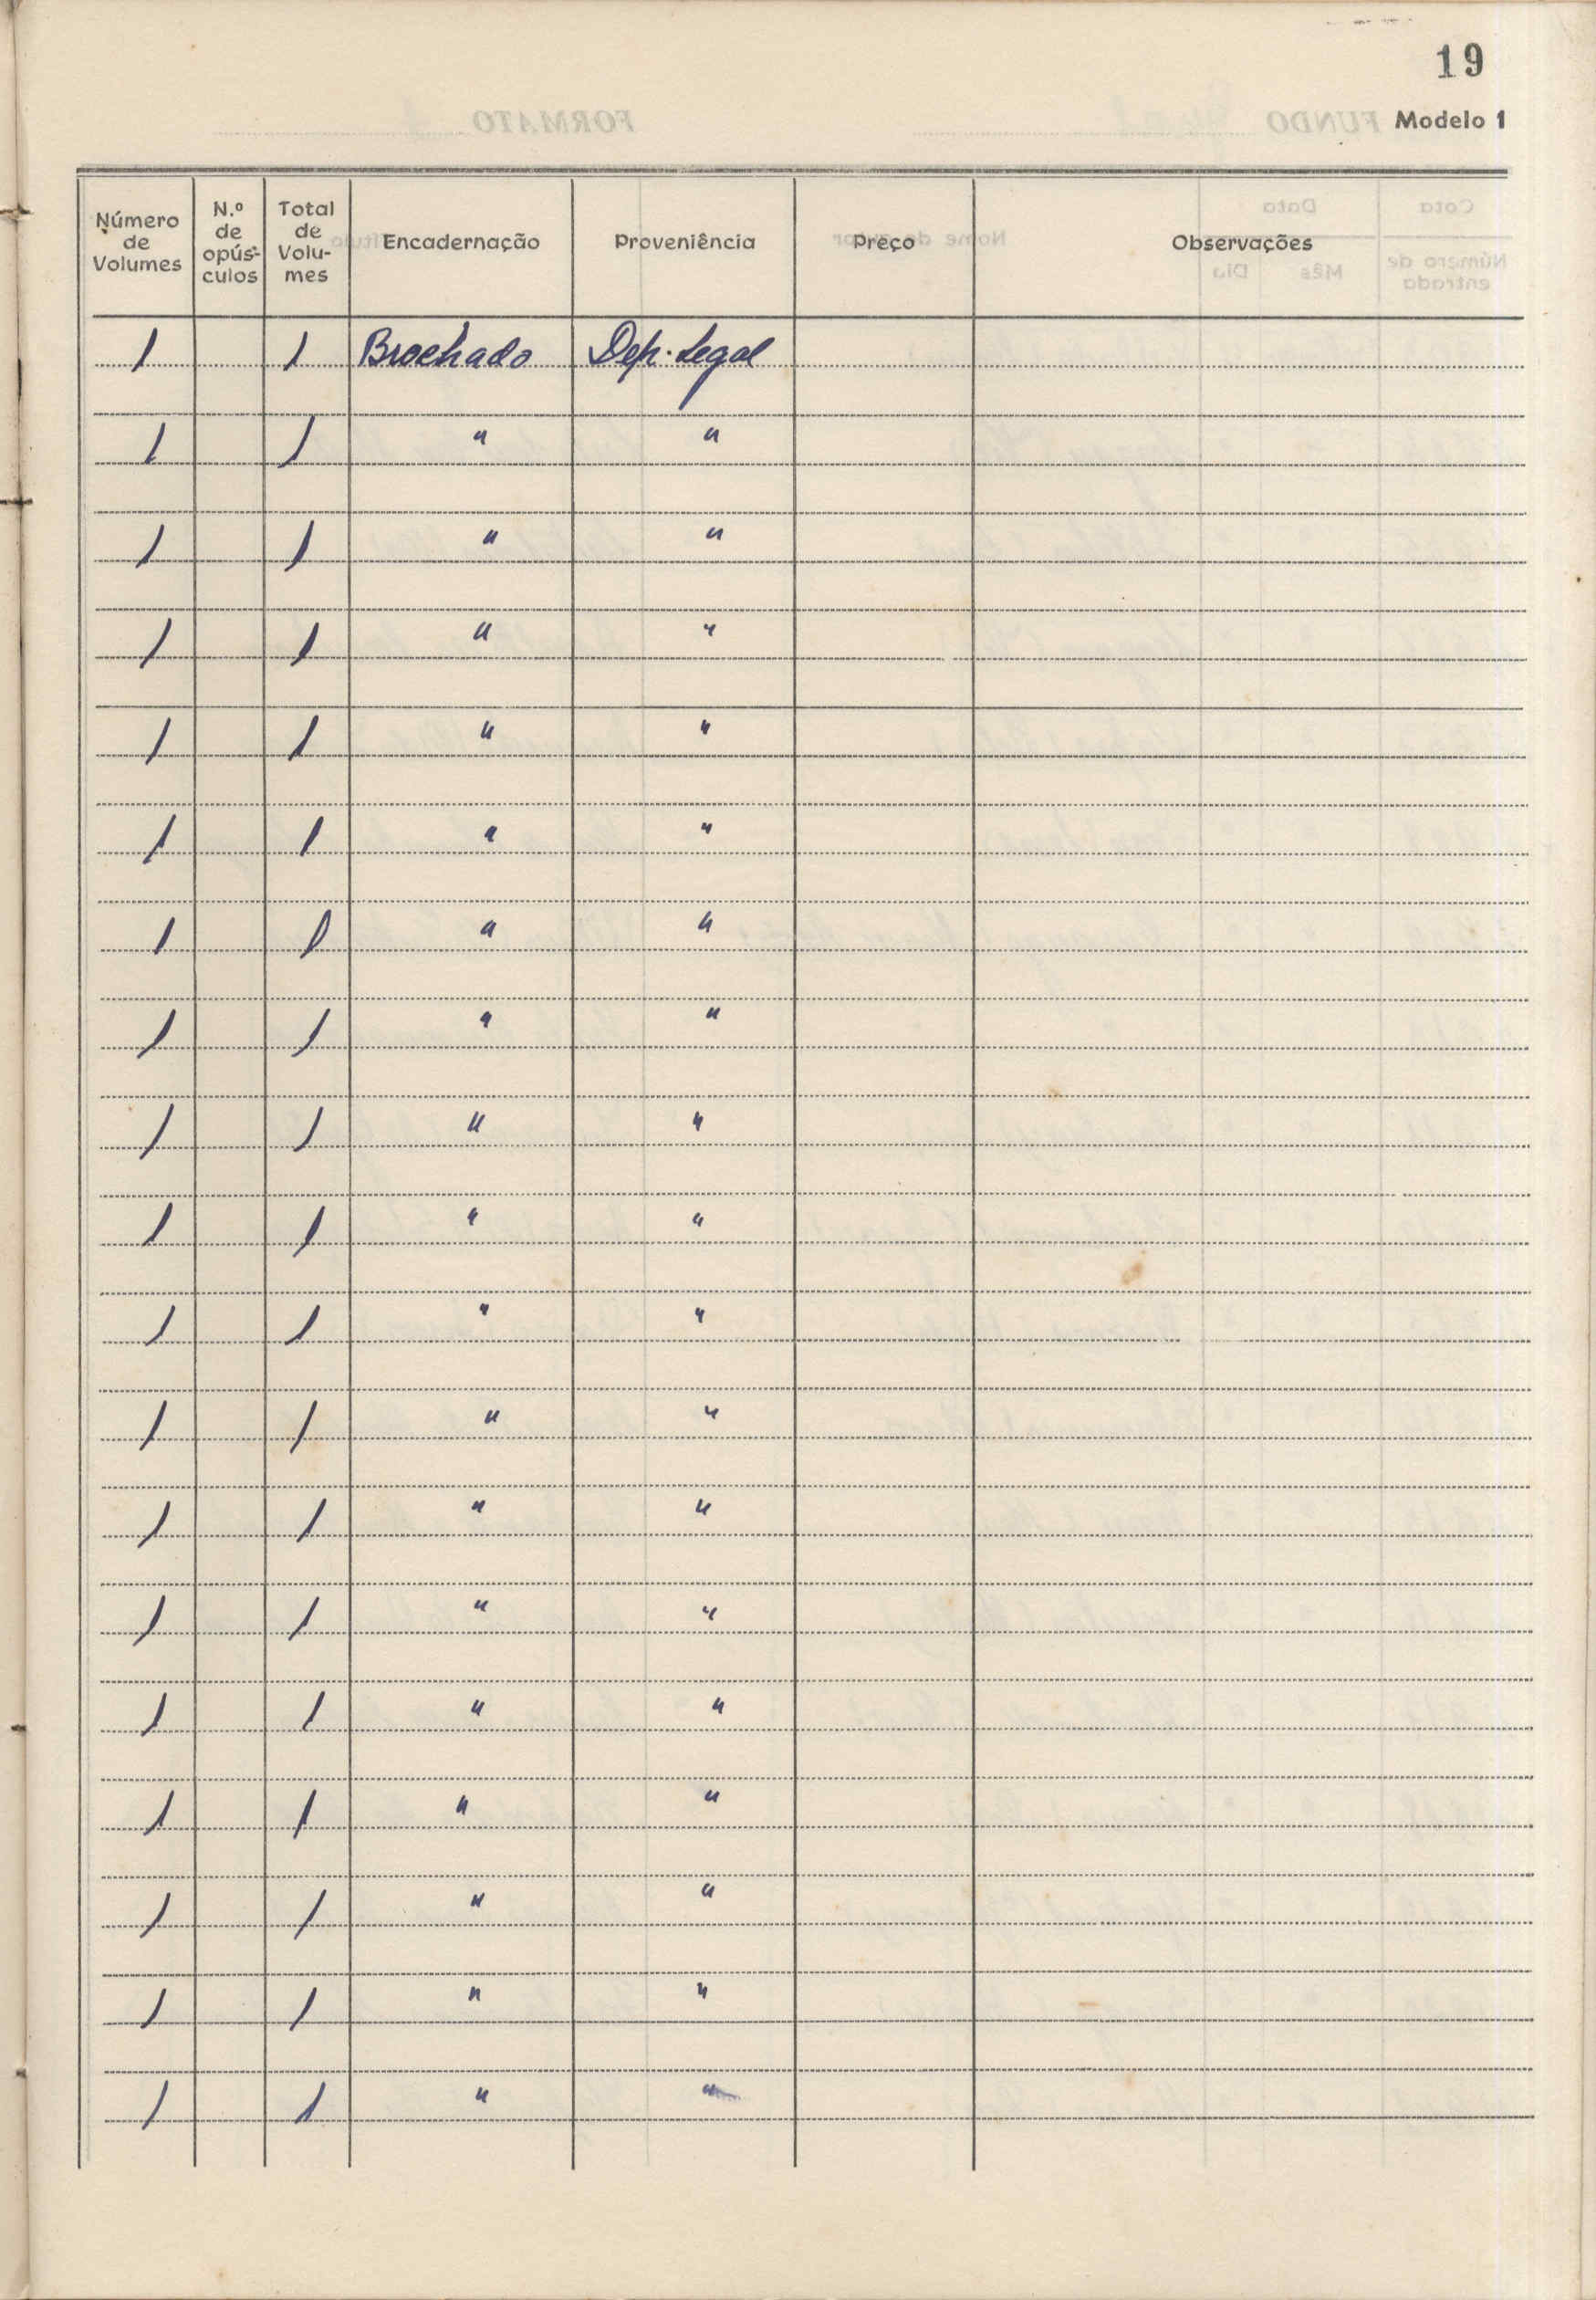 19
Modelo 1
Número de Volumes | N.º de opúsculos | Total de Volumes | Encadernação | Proveniência | Preço | Observações
1 | | 1 | Brochado | Dep. Legal
1 | | 1 | " | "
1 | | 1 | " | "
1 | | 1 | " | "
1 | | 1 | " | "
1 | | 1 | " | "
1 | | 1 | " | "
1 | | 1 | " | "
1 | | 1 | " | "
1 | | 1 | " | "
1 | | 1 | " | "
1 | | 1 | " | "
1 | | 1 | " | "
1 | | 1 | " | "
1 | | 1 | " | "
1 | | 1 | " | "
1 | | 1 | " | "
1 | | 1 | " | "
1 | | 1 | " | "